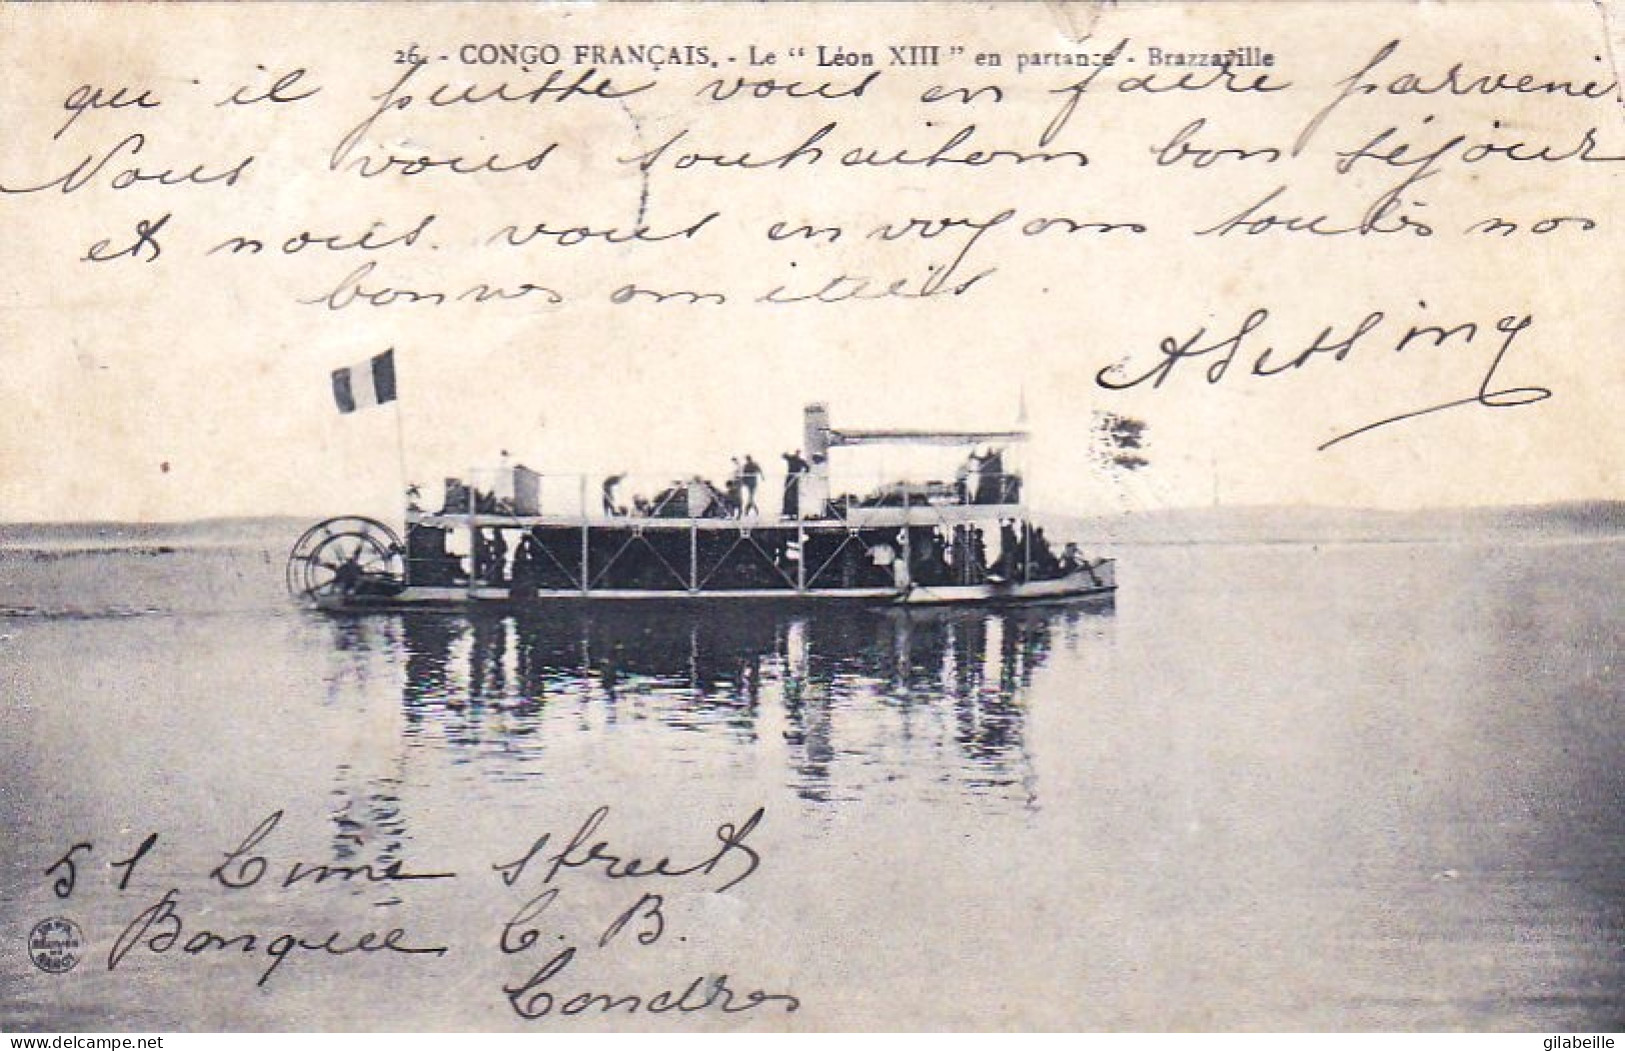 26. - CONGO FRANÇAIS. - Le “ Léon XIII ” en partance - Brazzaville
qu il puisse vous en faire parvenir
Nous vous souhaitons bon séjour
et nous vous envoyons toutes nos
bonnes amitiés.
51 Lime Street
Banque C. B.
Londres
www.delcampe.net
gilabeille